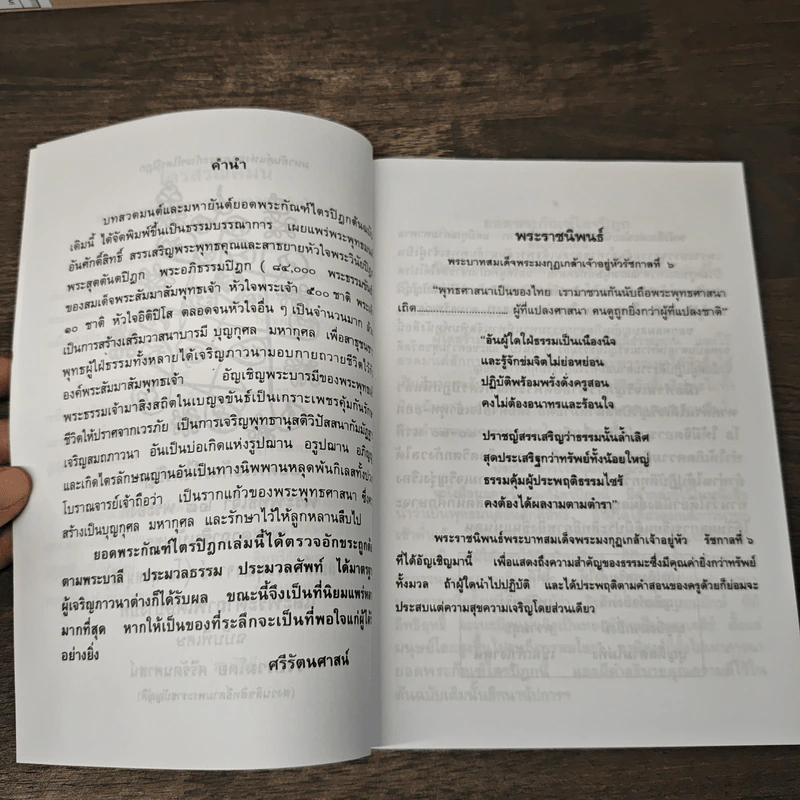 คำนำ
บทสวดมนต์และมหายันต์ยอดพระกัณฑ์ไตรปิฎกต้นฉบับ
เดิมนี้ ได้จัดพิมพ์ขึ้นเป็นธรรมบรรณาการ เผยแพร่พระพุทธมนต์
อันศักดิ์สิทธิ์ สรรเสริญพระพุทธคุณและสาธยายหัวใจพระวินัยปิฎก
พระสุตตันตปิฎก พระอภิธรรมปิฎก ( ๘๔,๐๐๐ พระธรรมขันธ์
ของสมเด็จพระสัมมาสัมพุทธเจ้า หัวใจพระเจ้า ๕๐๐ ชาติ พระเจ้า
๑๐ ชาติ หัวใจอิติปิโส ตลอดจนหัวใจอื่น ๆ เป็นจำนวนมาก
เป็นการสร้างเสริมวาสนาบารมี บุญกุศล มหากุศล เพื่อสาธุชน
พุทธผู้ใฝ่ธรรมทั้งหลายได้เจริญภาวนามอบกายถวายชีวิตไว้
องค์พระสัมมาสัมพุทธเจ้า อัญเชิญพระบารมีของพระพุทธ
พระธรรมเจ้ามาสิงสถิตในเบญจขันธ์เป็นเกราะเพชรคุ้มกันรักษา
ชีวิตให้ปราศจากเวรภัย เป็นการเจริญพุทธานุสติวิปัสสนากัมมัฏฐาน
เจริญสมถภาวนา อันเป็นบ่อเกิดแห่งรูปฌาน อรูปฌาน อภิญญา
และเกิดไตรลักษณญานอันเป็นทางนิพพานหลุดพ้นกิเลสทั้งปวง
โบราณจารย์เจ้าถือว่า เป็นรากแก้วของพระพุทธศาสนา
สร้างเป็นบุญกุศล มหากุศล และรักษาไว้ให้ลูกหลานสืบไป
ยอดพระกัณฑ์ไตรปิฎกเล่มนี้ได้ตรวจอักขระถูกต้อง
ตามพระบาลี ประมวลธรรม ประมวลศัพท์ ได้มาตรฐาน
ผู้เจริญภาวนาต่างก็ได้รับผล ขณะนี้จึงเป็นที่นิยมแพร่หลาย
มากที่สุด หากให้เป็นของที่ระลึกจะเป็นที่พอใจแก่ผู้ได้
อย่างยิ่ง
ศรีรัตนศาสน์
พระราชนิพนธ์
พระบาทสมเด็จพระมงกุฎเกล้าเจ้าอยู่หัวรัชกาลที่ ๖
"พุทธศาสนาเป็นของไทย เรามาชวนกันนับถือพระพุทธศาสนา
เถิด.................................. ผู้ที่แปลงศาสนา คนดูถูกยิ่งกว่าผู้ที่แปลงชาติ"
"อันผู้ใดใฝ่ธรรมเป็นเนืองนิจ
และรู้จักข่มจิตไม่ย่อหย่อน
ปฏิบัติพร้อมพรั่งดั่งครูสอน
คงไม่ต้องอนาทรและร้อนใจ
ปราชญ์สรรเสริญว่าธรรมนั้นล้ำเลิศ
สุดประเสริฐกว่าทรัพย์ทั้งน้อยใหญ่
ธรรมคุ้มผู้ประพฤติธรรมไซร้
คงต้องได้ผลงามตามตำรา"
พระราชนิพนธ์พระบาทสมเด็จพระมงกุฎเกล้าเจ้าอยู่หัว รัชกาลที่ ๖
ที่ได้อัญเชิญมานี้ เพื่อแสดงถึงความสำคัญของธรรมะซึ่งมีคุณค่ายิ่งกว่าทรัพย์
ทั้งมวล ถ้าผู้ใดนำไปปฏิบัติ และได้ประพฤติตามคำสอนของครูด้วยก็ย่อมจะ
ประสบแต่ความสุขความเจริญโดยส่วนเดียว